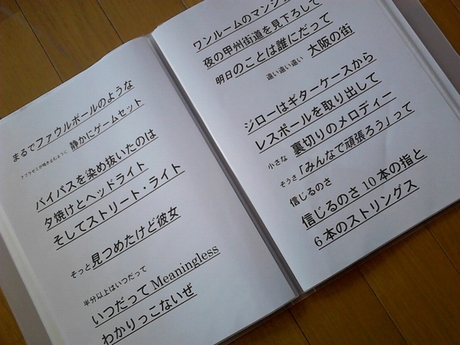 まるでファウルボールのような
静かにゲームセット
バイパスを染め抜いたのは
夕焼けとヘッドライト
そしてストリート・ライト
そっと見つめたけど彼女
半分以上はいつだって
いつだってMeaningless
わかりっこないぜ
ワンルームのマンシ
夜の甲州街道を見下ろして
明日のことは誰にだって
遠い遠い遠い 大阪の街
ジローはギターケースから
レスポールを取り出して
小さな 裏切りのメロディー
そうさ「みんなで頑張ろう」って
信じるのさ
信じるのさ10本の指と
6本のストリングス